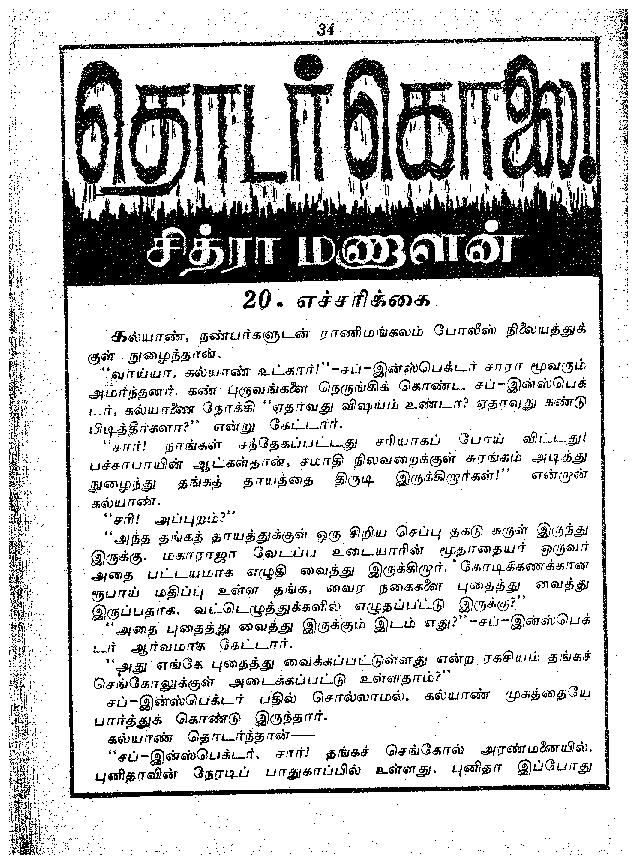 34
தொடர் கொலை!
சித்ரா மணாளன்
20. எச்சரிக்கை
கல்யாண், நண்பர்களுடன் ராணிமங்கலம் போலீஸ் நிலையத்துக்
குள் நுழைந்தான்.
"வாய்யா, கல்யாண் உட்கார்!"-சப்-இன்ஸ்பெக்டர் சாரா மூவரும்
அமர்ந்தனர். கண் புருவங்களை நெருங்கிக் கொண்ட சப்-இன்ஸ்பெக்
டர், கல்யாணை நோக்கி "ஏதாவது விஷயம் உண்டா? ஏதாவது கண்டு
பிடித்தீர்களா?" என்று கேட்டார்.
"சார்! நாங்கள் சந்தேகப்பட்டது சரியாகப் போய் விட்டது!
பச்சாபாயின் ஆட்கள்தான், சமாதி நிலவறைக்குள் சுரங்கம் அடித்து
நுழைந்து தங்கத் தாயத்தை திருடி இருக்கிறார்கள்!" என்றான்
கல்யாண்.
"சரி! அப்புறம்?"
"அந்த தங்கத் தாயத்துக்குள் ஒரு சிறிய செப்பு தகடு சுருள் இருந்து
இருக்கு. மகாராஜா வேடப்ப உடையாரின் மூதாதையர் ஒருவர்
அதை பட்டயமாக எழுதி வைத்து இருக்கிறார். கோடிக்கணக்கான
ரூபாய் மதிப்பு உள்ள தங்க, வைர நகைகளை புதைத்து வைத்து
இருப்பதாக, வட்டெழுத்துக்களில் எழுதப்பட்டு இருக்கு?"
"அதை புதைத்து வைத்து இருக்கும் இடம் எது?"-சப்-இன்ஸ்பெக்
டர் ஆர்வமாக கேட்டார்.
"அது எங்கே புதைத்து வைக்கப்பட்டுள்ளது என்ற ரகசியம் தங்கச்
செங்கோலுக்குள் அடைக்கப்பட்டு உள்ளதாம்?"
சப்-இன்ஸ்பெக்டர் பதில் சொல்லாமல், கல்யாண் முகத்தையே
பார்த்துக் கொண்டு இருந்தார்.
கல்யாண் தொடர்ந்தான்—
"சப்-இன்ஸ்பெக்டர், சார்! தங்கச் செங்கோல் அரண்மனையில்,
புனிதாவின் நேரடிப் பாதுகாப்பில் உள்ளது. புனிதா இப்போது